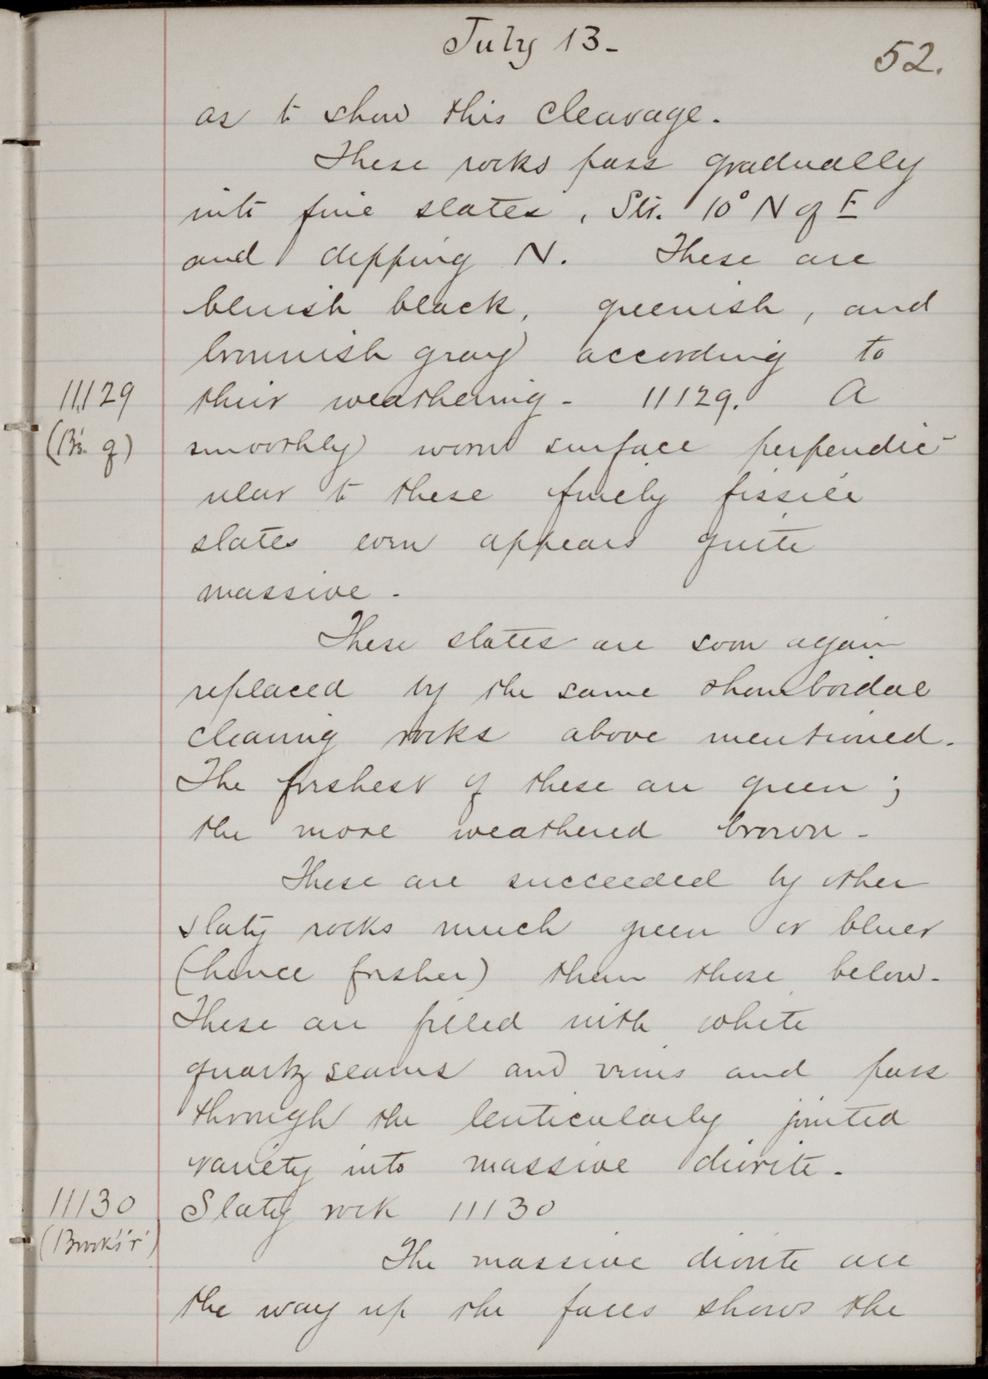 July 13-
52.
as to show this cleavage.
These rocks pass gradually
into fine slates, Str. 10° N of E
and dipping N. These are
bluish black, greenish, and
brownish gray according to
11129
their weathering - 11129. A
(B's. q)
smoothly worn surface perpendic-
ular to these finely fissile
slates even appears quite
massive.
These slates are soon again
replaced by the same rhomboidal
cleaving rocks above mentioned.
The freshest of these are green;
the more weathered brown -
These are succeeded by other
slaty rocks much green or bluer
(hence fresher) than those below.
These are filled with white
quartz seams and veins and pass
through the lenticularly jointed
variety into massive diorite.
11130
Slaty rock 11130
(Brook's 'r')
The massive diorite all
the way up the falls shows the